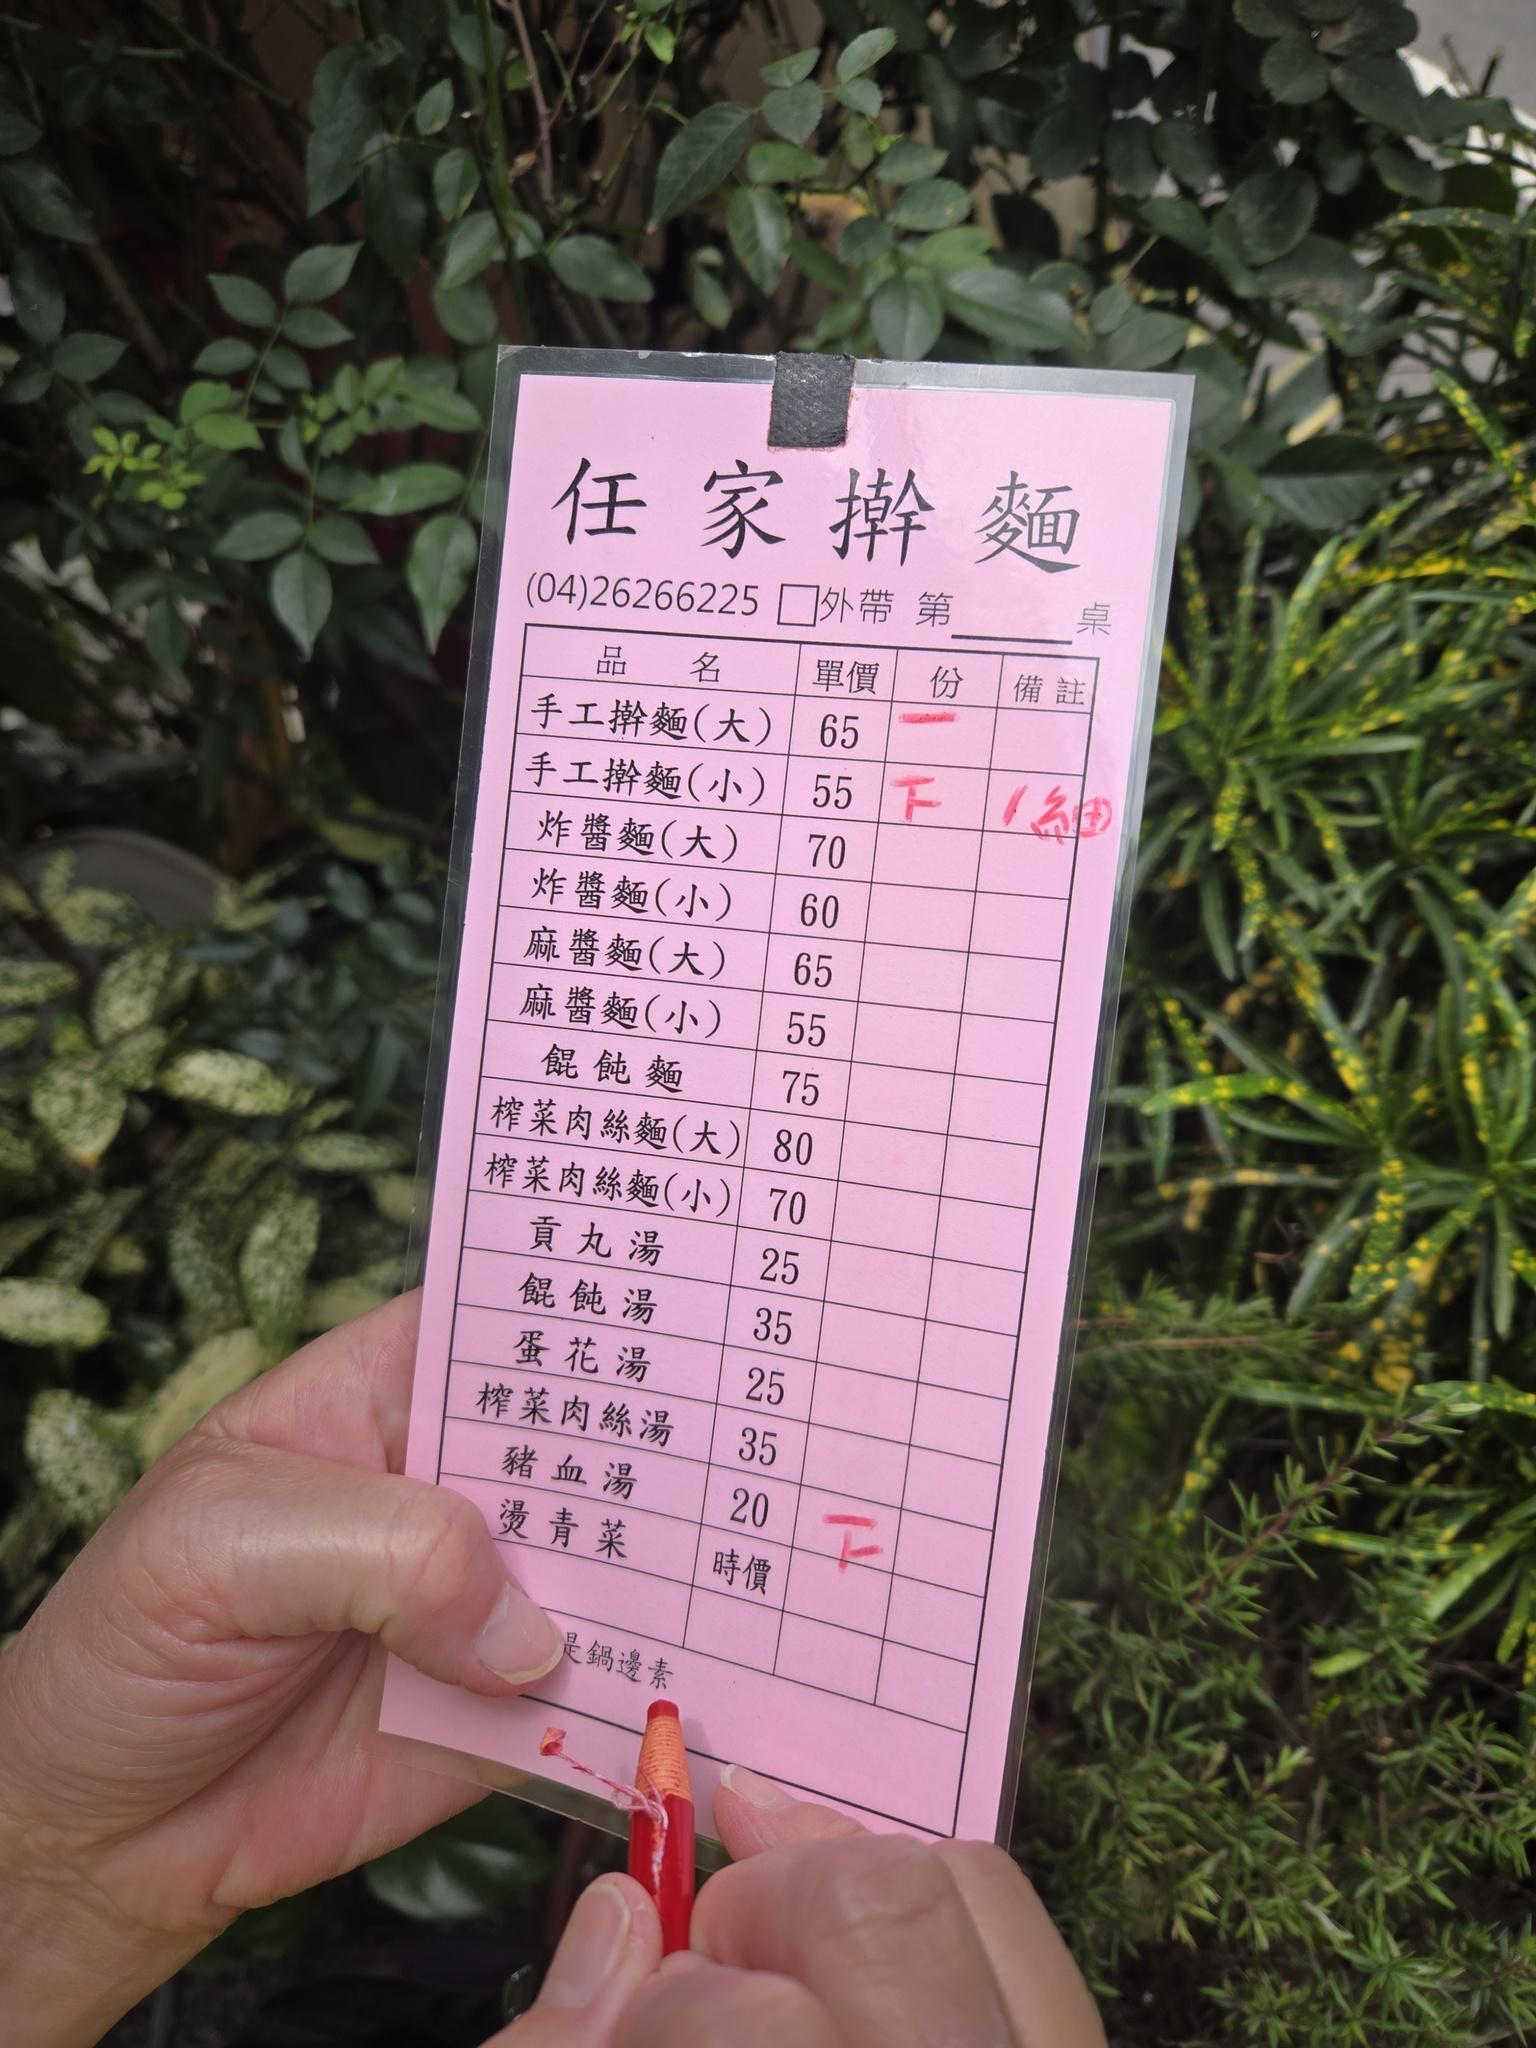 任家擀麵
(04)26266225 □外帶 第____桌
品名 單價 份 備註
手工擀麵(大) 65 一
手工擀麵(小) 55 下 1細
炸醬麵(大) 70
炸醬麵(小) 60
麻醬麵(大) 65
麻醬麵(小) 55
餛飩麵 75
榨菜肉絲麵(大) 80
榨菜肉絲麵(小) 70
貢丸湯 25
餛飩湯 35
蛋花湯 25
榨菜肉絲湯 35
豬血湯 20 下
燙青菜 時價
是鍋邊素